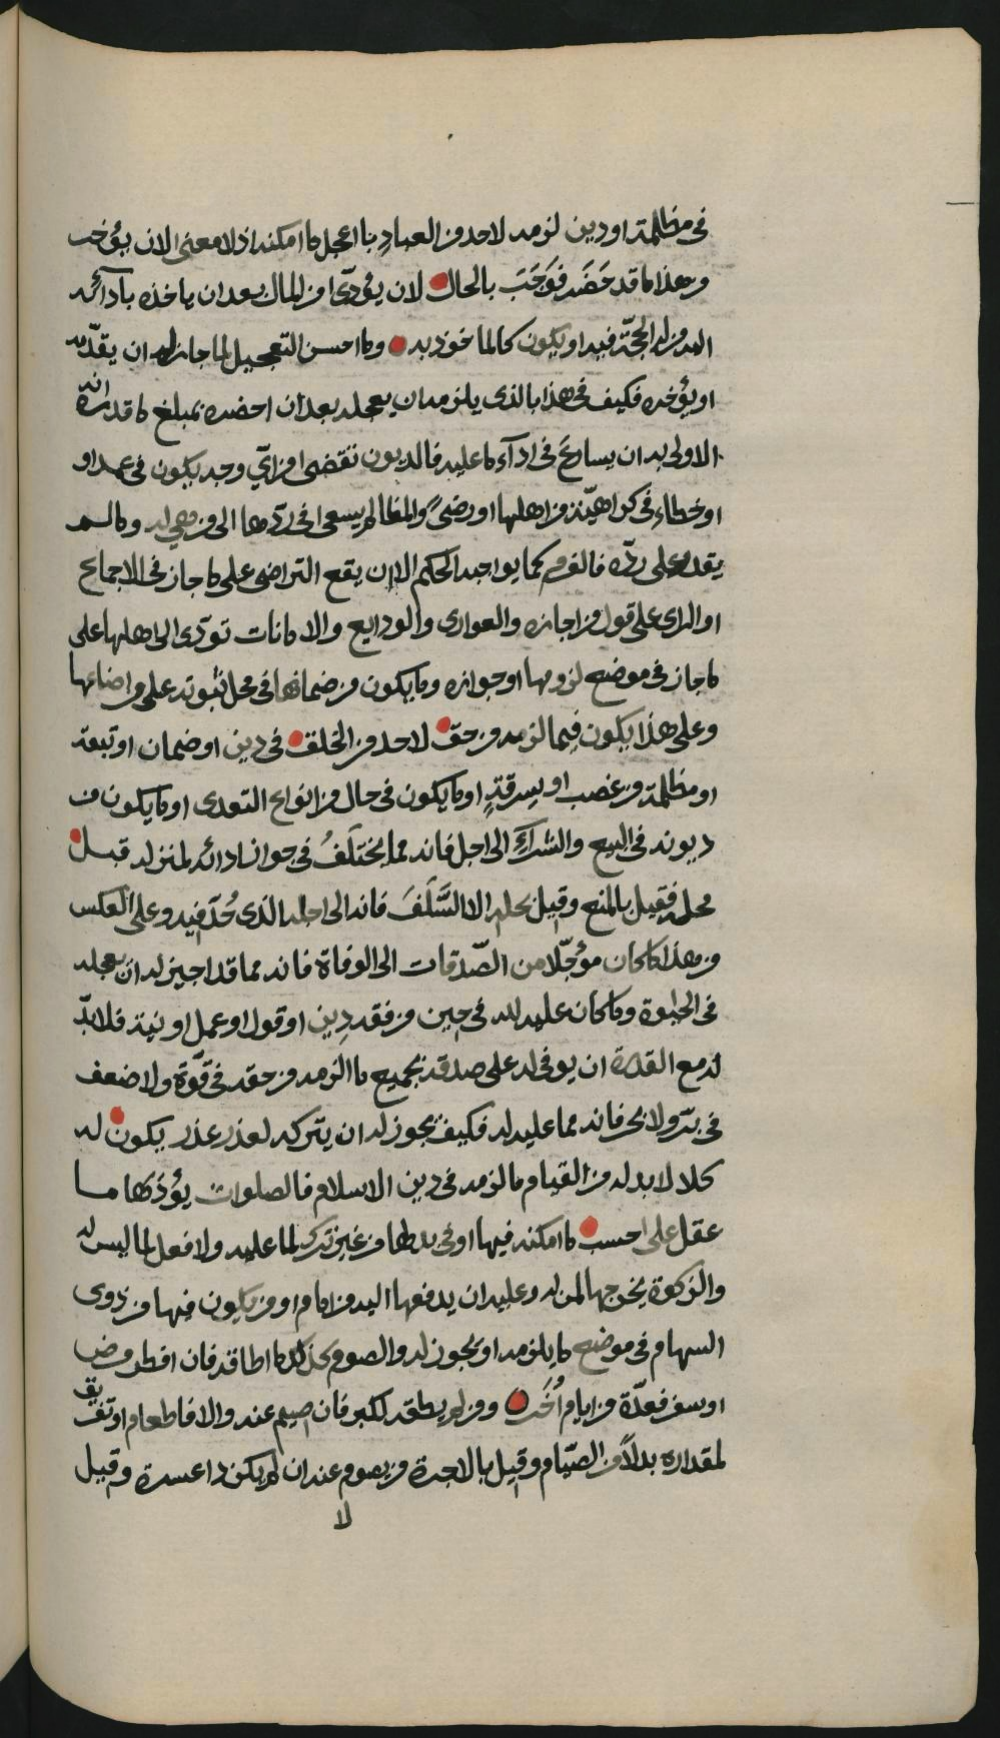 في مظلمة او دين لزمه لاحد من العباد باعجل ما امكنه اذ لا معنى لان يؤخر
وهذا ما قد حَضَر فوَجَبَ بالحال لان يؤدّى من المال بعد ان ياخذه بادائه
اليه من له الحجّة فيه او يكون كالماخوذ به وما احسن التعجيل لما جاز له ان يقدّمه
او يؤخره فكيف في هذا بالذي يلزمه ان يعجله بعد ان احضره بمبلغ ما قدر انه
الاولى به ان يسارعَ في اداء ما عليه فالديون تقضى من ايّ وجه يكون في عمد او
او خطاء في كراهيّة من اهلها او رضىً والمظالم يسعى في ردّها الى من هي له وما لم
يقدر على ردّه فالغرم كما يواجبه الحكم الا ان يقع التراضي على ما جاز في الاجماع
او الراى على قول من اجازه والعوارى والودايع والامانات تودّى الى اهلها على
ما جاز في موضع لزومها او جوازه وما يكون من ضمانها في محل ثبوته على من اضاعها
وعلى هذا يكون فيما لزمه من حقّ لاحد من الخلق في دين او ضمان او تبعة
او مظلمة من غصب او سرقةٍ او ما يكون في حال من انواع التعدى او ما يكون من
ديونه في البيع والشراءِ الى اجل فانه مما يُختَلَفُ في جواز ادائه لمن له قبل
محله فقيل بالمنع وقيل بحله الا السَّلَفَ فانه الى اجله الذى حُدّ فيه وعلى العكس
من هذا ما كان مؤجّلا من الصّدقات الى الوفاة فانه مما قد اجيز له ان يعجله
في الحيوة وما كان عليه لله في حين من فقد دِين او قول او عمل او نية فلا بدّ
له مع القدرة ان يوفي له على صدقه بجميع ما الزمه من حقه في قوّة ولا ضعف
في برّ ولا بحر فانه مما عليه له فكيف يجوز له ان يتركه لعذر عذر يكون له
كلا لا بد له من القيام بما لزمه في دين الاسلام فالصلوات يؤدّيها ما
عقل على احسب ما امكنه فيها او في بدلها من غير ترك لما عليه ولا فعل لما ليس له
والزكوة يخرجها لمن له وعليه ان يدفعها اليه من امام او من يكون فيها من ذوى
السهام في موضع ما يلزمه او يجوز له والصوم كذلك ما اطاقه فان افطر لمرض
او سفر فعدّة من ايام اُخَر ومن لم يطقه لكبر فان صيم عنه والا فاطعام او تفريق
لمقداره بدلاً من الصّيام وقيل بالاجرة من يصوم عنه ان لم يكن ذا عسرة وقيل
لا